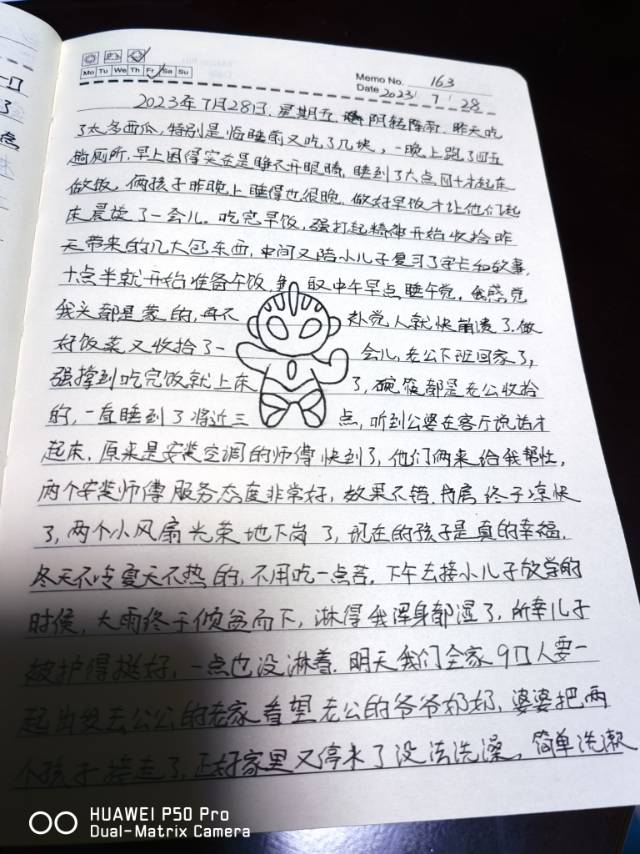 Mo Tu We Th Fr Sa Su
Memo No. 163
Date 2023 / 7 / 28
2023年7月28日,星期五,阴转阵雨.昨天吃
了太多西瓜,特别是临睡前又吃了几块,一晚上跑了四五
趟厕所,早上困得实在是睁不开眼睛,睡到了六点四十才起床
做饭,俩孩子昨晚上睡得也很晚,做好早饭才让他们起
床晨读了一会儿.吃完早饭,强打起精神开始收拾昨
天带来的几大包东西,中间又陪小儿子复习了字卡和故事,
十点半就开始准备午饭,争取中午早点睡午觉,我感觉
我头都是蒙的,再不补觉人就快崩溃了.做
好饭菜又收拾了一会儿,老公下班回家了,
强撑到吃完饭就上床了,碗筷都是老公收拾
的,一直睡到了将近三点,听到公婆在客厅说话才
起床,原来是安装空调的师傅快到了,他们俩来给我帮忙,
两个安装师傅服务态度非常好,效果不错,书房终于凉快
了,两个小风扇光荣地下岗了,现在的孩子是真的幸福,
冬天不冷夏天不热的,不用吃一点苦.下午去接小儿子放学的
时候,大雨终于倾盆而下,淋得我浑身都湿了,所幸儿子
被护得挺好,一点也没淋着.明天我们全家9口人要一
起出发去公公的老家看望老公的爷爷奶奶,婆婆把两
个孩子接走了,正好家里又停水了没法洗澡,简单洗漱
HUAWEI P50 Pro
Dual-Matrix Camera